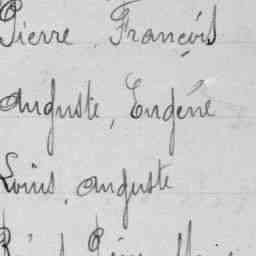 Pierre, François
Auguste, Eugène
Louis, Auguste